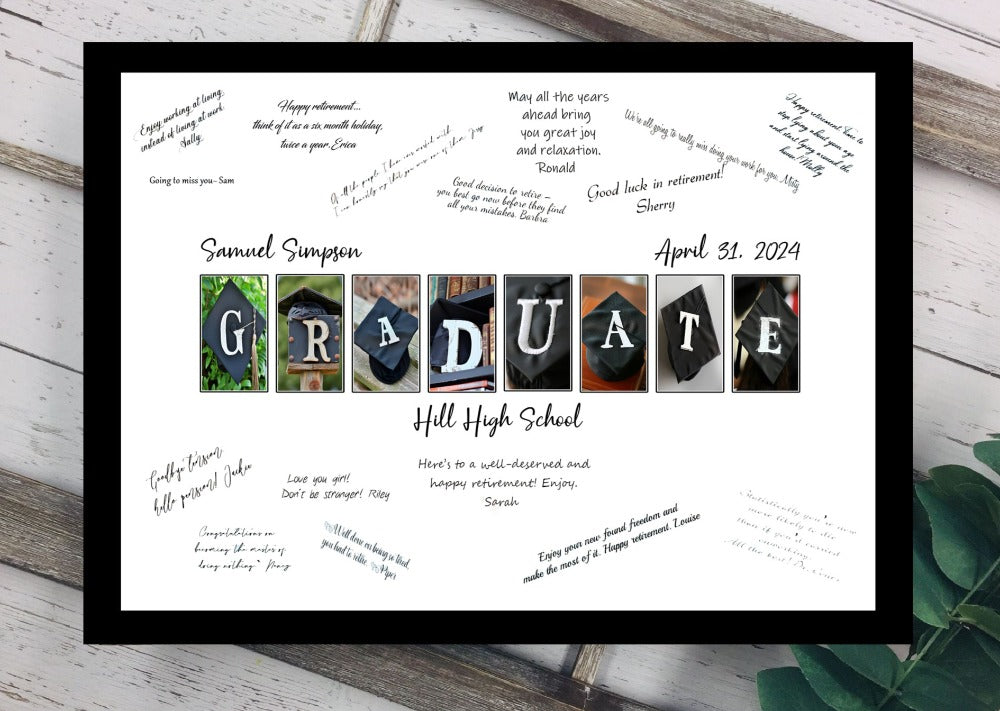 Enjoy working at living,
instead of living at work
Sally
Happy retirement...
think of it as a six month holiday,
twice a year. Erica
Going to miss you~ Sam
Of all the people I have ever worked with
I can honestly say that you were one of them.
Good decision to retire –
you best go now before they find
all your mistakes. Barbra
May all the years
ahead bring
you great joy
and relaxation.
Ronald
Good luck in retirement!
Sherry
We're all going to really miss doing your work for you. Misty
Happy retirement. Time to
stop lying about your age
and start lying around the
house. Molly
Samuel Simpson
April 31. 2024
GRADUATE
Hill High School
Goodbye tension
hello pension! Jackie
Love you girl!
Don't be stranger! Riley
Here's to a well-deserved and
happy retirement! Enjoy.
Sarah
Congratulations on
becoming the master of
doing nothing"
Well done on being so tired,
you had to retire. Piper
Enjoy your new found freedom and
make the most of it. Happy retirement. Louise
Statistically you're now
more likely to die
than if you'd carried
All the best!